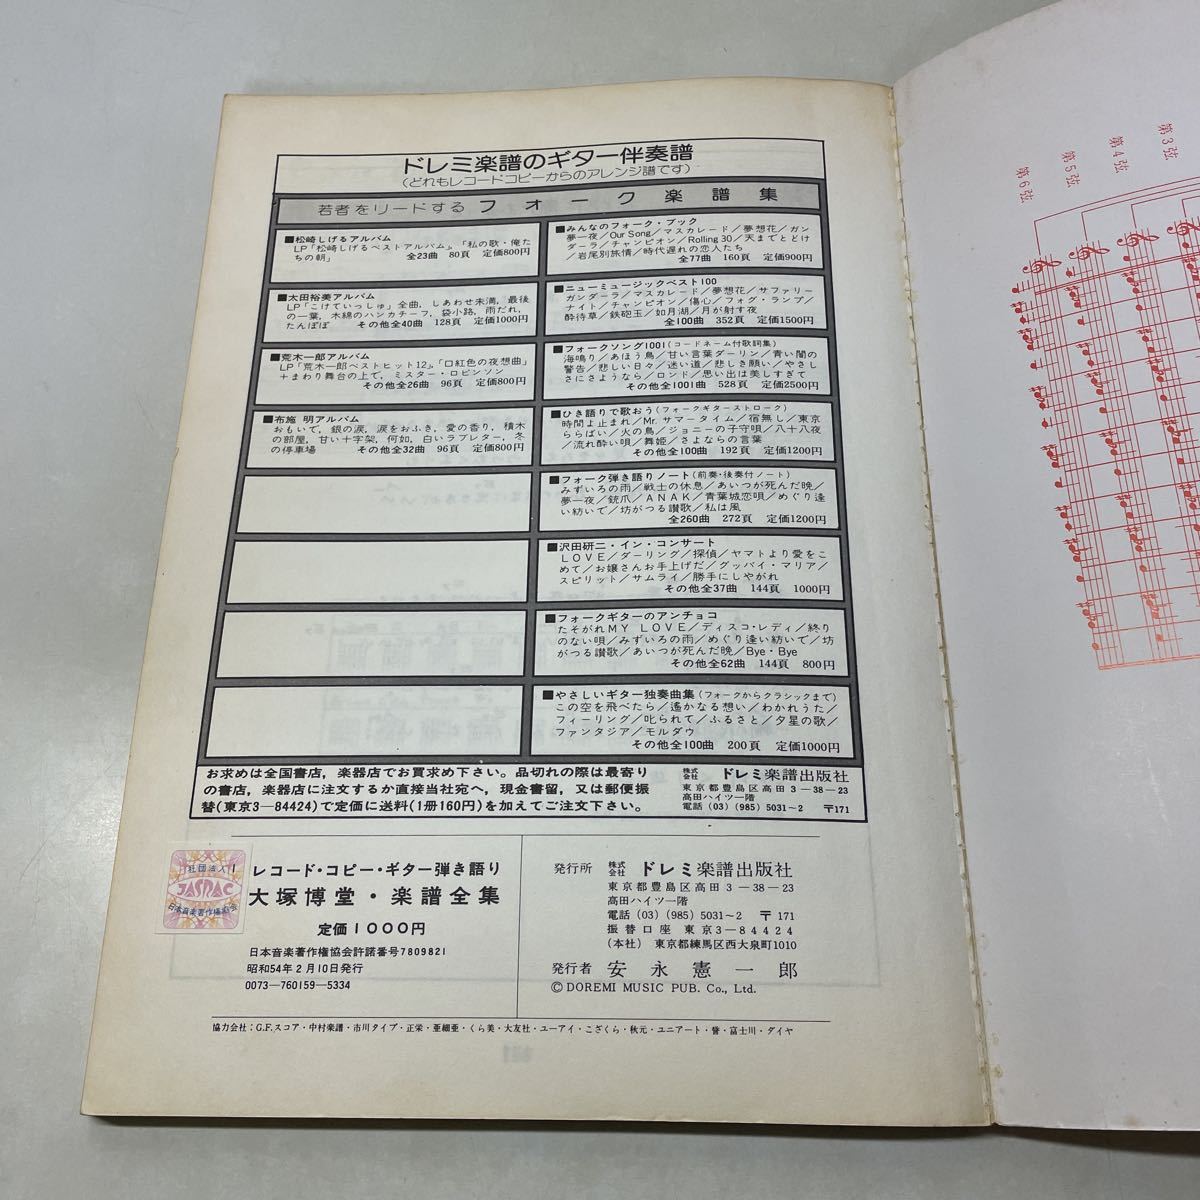 ドレミ楽譜のギター伴奏譜
(どれもレコードコピーからのアレンジ譜です)
若者をリードする フォーク楽譜集
■松崎しげるアルバム
LP「松崎しげるベストアルバム」,「私の歌・俺た
ちの朝」 全23曲 80頁 定価800円
■太田裕美アルバム
LP「こけてぃっしゅ」全曲, しあわせ未満, 最後
の一葉, 木綿のハンカチーフ, 袋小路, 雨だれ,
たんぽぽ その他全40曲 128頁 定価1000円
■荒木一郎アルバム
LP「荒木一郎ベストヒット12」,「口紅色の夜想曲」
+まわり舞台の上で, ミスター・ロビンソン
その他全26曲 96頁 定価800円
■布施 明アルバム
おもいで, 銀の涙, 涙をおふき, 愛の香り, 積木
の部屋, 甘い十字架, 何如, 白いラブレター, 冬
の停車場 その他全32曲 96頁 定価800円
■みんなのフォーク・ブック
夢一夜/Our Song/マスカレード/夢想花/ガン
ダーラ/チャンピオン/Rolling 30/天までとどけ
/岩尾別旅情/時代遅れの恋人たち
全77曲 160頁 定価900円
■ニューミュージックベスト100
ガンダーラ/マスカレード/夢想花/サファリー
ナイト/チャンピオン/傷心/フォグ・ランプ/
酔待草/鉄砲玉/如月湖/月が射す夜
全100曲 352頁 定価1500円
■フォークソング1001(コードネーム付歌詞集)
海鳴り/あほう鳥/甘い言葉ダーリン/青い闇の
警告/悲しい日々/迷い道/悲しき願い/やさし
さにさようなら/ロンド/思い出は美しすぎて
その他全1001曲 528頁 定価2500円
■ひき語りで歌おう(フォークギターストローク)
時間よ止まれ/Mr. サマータイム/宿無し/東京
ららばい/火の鳥/ジョニーの子守唄/八十八夜
/流れ酔い唄/舞姫/さよならの言葉
その他全100曲 192頁 定価1200円
■フォーク弾き語りノート(前奏・後奏付ノート)
みずいろの雨/戦士の休息/あいつが死んだ晩/
夢一夜/銃爪/ANAK/青葉城恋唄/めぐり逢
い紡いで/坊がつる讃歌/私は風
全260曲 272頁 定価1200円
■沢田研二・イン・コンサート
LOVE/ダーリング/探偵/ヤマトより愛をこ
めて/お嬢さんお手上げだ/グッバイ・マリア/
スピリット/サムライ/勝手にしやがれ
その他全37曲 144頁 1000円
■フォークギターのアンチョコ
たそがれMY LOVE/ディスコ・レディ/終り
のない唄/みずいろの雨/めぐり逢い紡いで/坊
がつる讃歌/あいつが死んだ晩/Bye・Bye
その他全62曲 144頁 800円
■やさしいギター独奏曲集(フォークからクラシックまで)
この空を飛べたら/遙かなる想い/わかれうた/
フィーリング/叱られて/ふるさと/夕星の歌/
ファンタジア/モルダウ
その他全100曲 200頁 定価1000円
お求めは全国書店, 楽器店でお買求め下さい。品切れの際は最寄り
の書店, 楽器店に注文するか直接当社宛へ, 現金書留, 又は郵便振
替(東京3—84424)で定価に送料(1冊160円)を加えてご注文下さい。
株式会社 ドレミ楽譜出版社
東京都豊島区高田3—38—23
高田ハイツ一階
電話(03)(985)5031~2 〒171
社団法人
JASRAC
日本音楽著作権協会
レコード・コピー・ギター弾き語り
大塚博堂・楽譜全集
定価1000円
日本音楽著作権協会許諾番号7809821
昭和54年2月10日発行
0073—760159—5334
発行所 株式会社 ドレミ楽譜出版社
東京都豊島区高田3—38—23
高田ハイツ一階
電話(03)(985)5031~2 〒171
振替口座 東京3—84424
(本社) 東京都練馬区西大泉町1010
発行者 安永憲一郎
© DOREMI MUSIC PUB. Co., Ltd.
協力会社:G.F.スコア・中村楽譜・市川タイプ・正栄・亜細亜・くら美・大友社・ユーアイ・こざくら・秋元・ユニアート・誉・富士川・ダイヤ
第3弦
第4弦
第5弦
第6弦